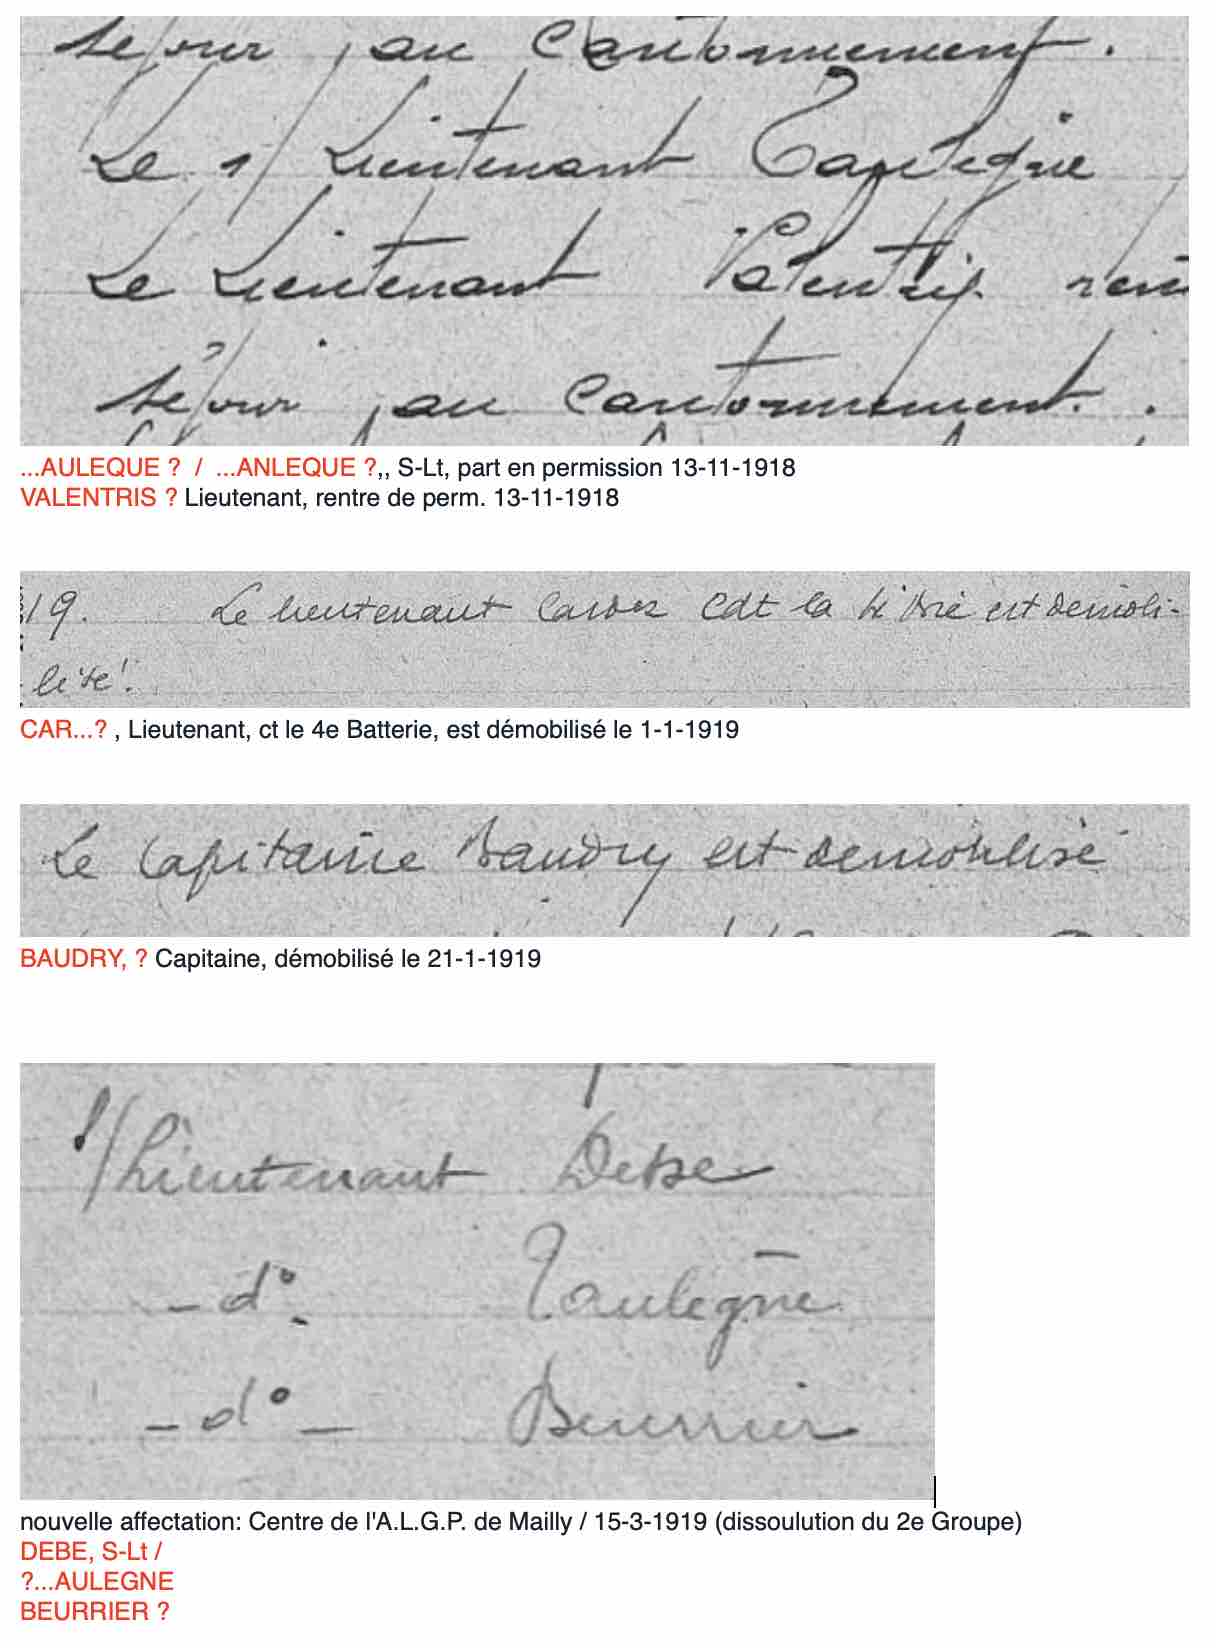 séjour au cantonnement.
Le s/ Lieutenant Taulègne
Le Lieutenant Valentin
séjour au cantonnement.
...AULEQUE ? / ...ANLEQUE ?,, S-Lt, part en permission 13-11-1918
VALENTRIS ? Lieutenant, rentre de perm. 13-11-1918
19. Le lieutenant Cdt la Bie est démobi-
lisé.
CAR...? , Lieutenant, ct le 4e Batterie, est démobilisé le 1-1-1919
Le Capitaine Baudry est démobilisé
BAUDRY, ? Capitaine, démobilisé le 21-1-1919
s/Lieutenant
- d°. Taulègne
- d° - Beurrier
nouvelle affectation: Centre de l'A.L.G.P. de Mailly / 15-3-1919 (dissoulution du 2e Groupe)
DEBE, S-Lt /
?...AULEGNE
BEURRIER ?